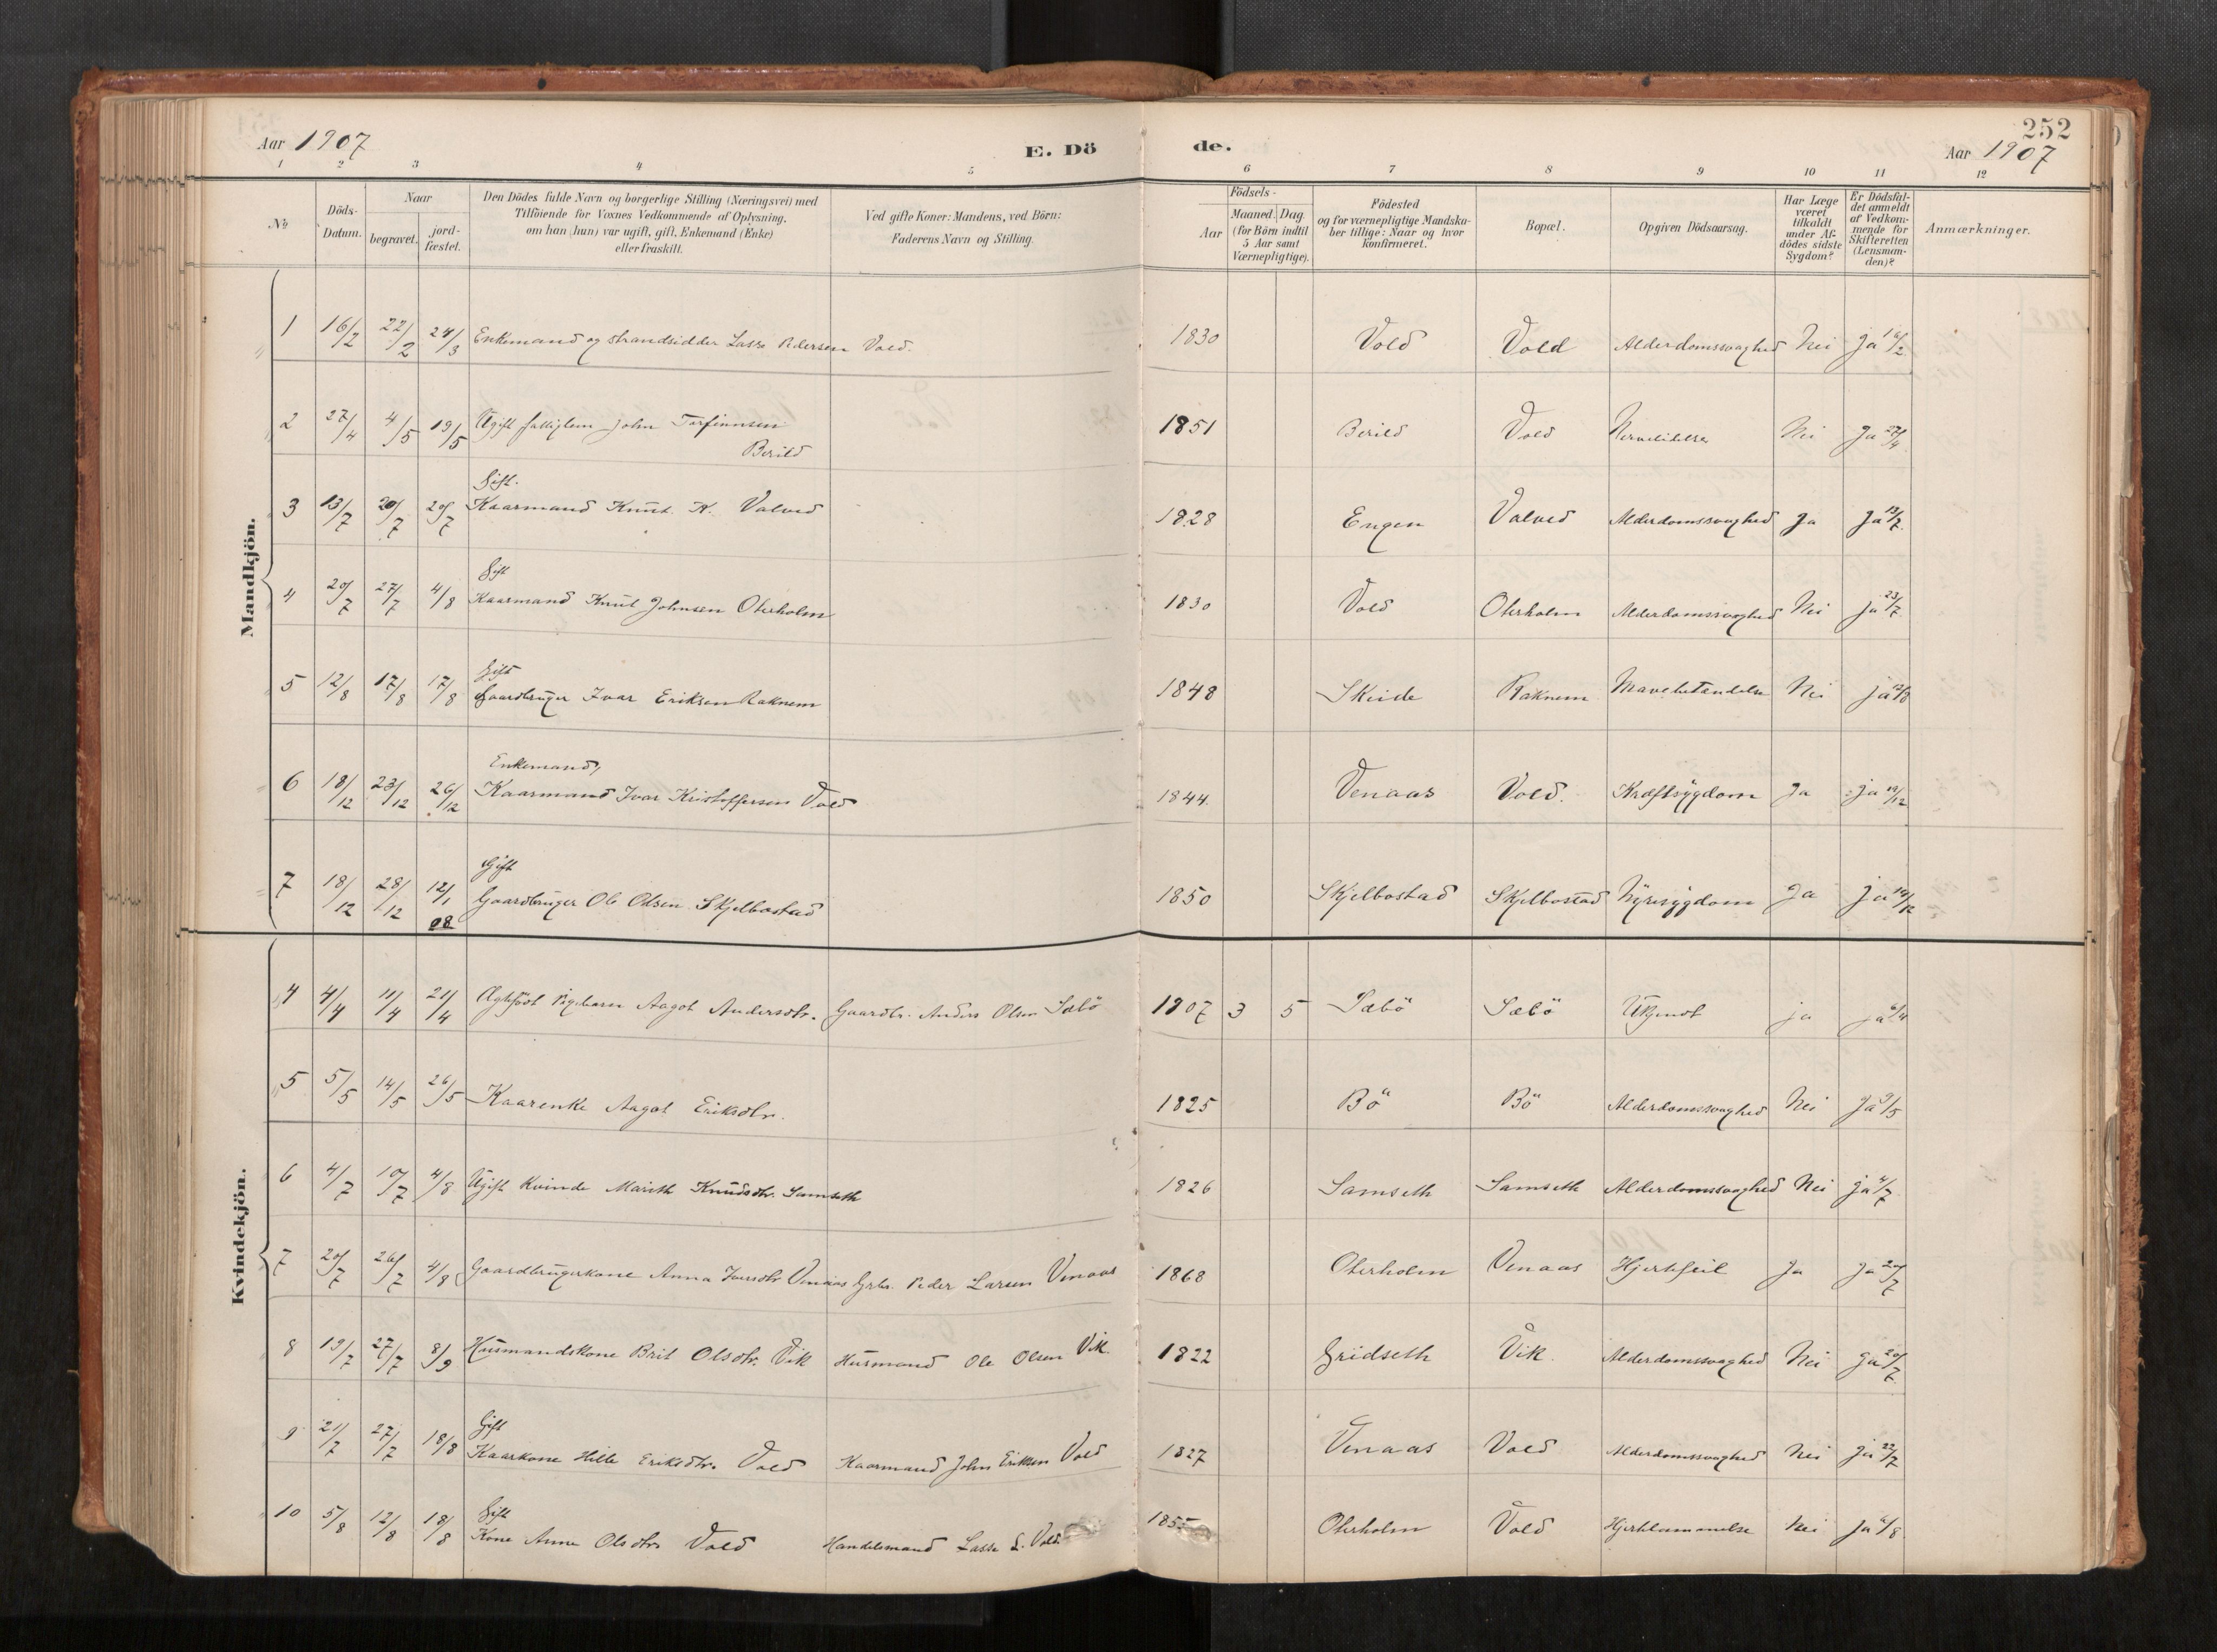 252
Aar 1907
E. Dö
de.
Aar 1907
1 2 3 4 5 6 7 8 9 10 11 12
No
Döds-Datum.
Naar begravet. jord-fæstet.
Den Dödes fulde Navn og borgerlige Stilling (Næringsvei) med
Tilföiende for Voxnes Vedkommende af Oplysning,
om han (hun) var ugift, gift, Enkemand (Enke)
eller fraskilt.
Ved gifte Koner: Mandens, ved Börn:
Faderens Navn og Stilling.
Födsels-
Aar Maaned. Dag.
(for Börn indtil 5 Aar samt Værnepligtige).
Födested
og for værnepligtige Mandska-
ber tillige: Naar og hvor
Konfirmeret.
Bopæl.
Opgiven Dödsaarsag.
Har Læge været tilkaldt under Af-dödes sidste Sygdom?
Er Dödsfal-det anmeldt af Vedkom-mende for Skifteretten (Lensman-den)?
Anmærkninger.
Mandkjön.
1 16/2 22/2 24/3 Enkemand og strandsidder Lasse Pedersen Vold. 1830 Vold Vold Alderdomssvaghed Nei Ja 16/2
2 27/4 4/5 19/5 Ugift fattiglem John Torfinnsen Berild 1851 Berild Vold Nervelidelse Nei Ja 27/4
3 13/7 20/7 20/7 Gift. Kaarmand Knut K. Valved 1828 Engen Valved Alderdomssvaghed Ja Ja 13/7
4 20/7 27/7 4/8 Gift Kaarmand Knut Johnsen Oterholm 1830 Vold Oterholm Alderdomssvaghed Nei Ja 23/7
5 12/8 17/8 17/8 Gift Gaardbruger Ivar Eriksen Raknem 1848 Skeide Raknem Mavebetændelse Nei ja 12/8
6 18/12 23/12 26/12 Enkemand, Kaarmand Ivar Kristoffersen Vold 1844. Venaas Vold. Kræftsygdom Ja Ja 19/12
7 18/12 28/12 12/1 08 Gift Gaardbruger Ole Olsen Skjelbostad 1850 Skjelbostad Skjelbostad Nyresygdom Ja ja 19/12
Kvindekjön.
4 4/4 11/4 21/4 Ægtefödt Pigebarn Aagot Andersdtr. Gaardbr. Anders Olsen Sæbö 1907 3 5 Sæbö Sæbö Ukjendt ja ja 6/4
5 5/5 14/5 26/5 Kaarenke Aagot Eriksdtr. 1825 Bö Bö Alderdomssvaghed Nei Ja 9/5
6 4/7 10/7 4/8 Ugift Kvinde Marith Knudsdtr. Samseth 1826 Samseth Samseth Alderdomssvaghed Nei ja 4/7
7 20/7 26/7 4/8 Gaardbrugerkone Anna Iversdtr Venaas Grbr. Peder Larsen Venaas 1868 Oterholm Venaas Hjertefeil Ja Ja 20/7
8 19/7 27/7 8/9 Husmandskone Brit Olsdtr. Vik Husmand Ole Olsen Vik. 1822 Gridseth Vik. Alderdomssvaghed Nei Ja 20/7
9 21/7 27/7 18/8 Gift Kaarkone Hille Eriksdtr. Vold Kaarmand John Eriksen Vold 1827 Venaas Vold Alderdomssvaghed Nei Ja 22/7
10 5/8 12/8 18/8 Gift Kone Anne Olsdtr Vold Handelsmand Lasse L. Vold. 1855 Oterholm Vold Hjertelammelse Nei Ja 6/8